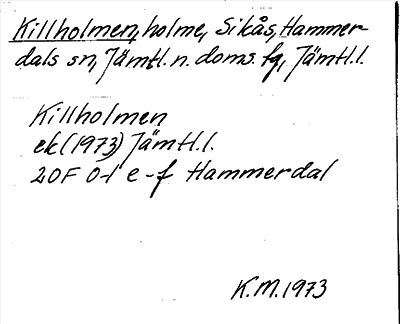 Killholmen, holme, Sikås, Hammer-
dals sn, Jämtl. n. doms. fg, Jämtl. l.
Killholmen
ek (1973) Jämtl. l.
20F 0-1 e-f Hammerdal
K.M. 1973